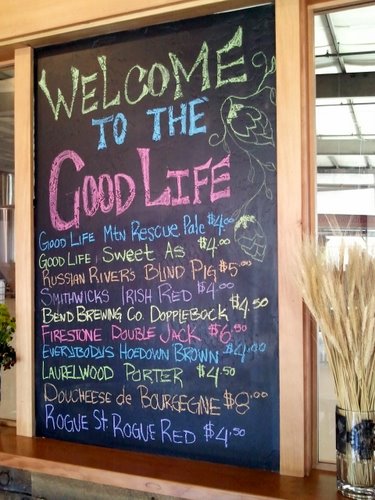 WELCOME
TO THE
GOOD LIFE
GOOD LIFE MTN RESCUE PALE $4.00
GOOD LIFE SWEET AS $4.00
RUSSIAN RIVERS BLIND PIG $5.00
SMITHWICKS IRISH RED $4.00
BEND BREWING CO. DOPPLEBOCK $4.50
FIRESTONE DOUBLE JACK $6.50
EVERYBODYS HOEDOWN BROWN $4.00
LAURELWOOD PORTER $4.50
DOUCHEESE de BOURGEGNE $8.00
ROGUE ST. ROGUE RED $4.50